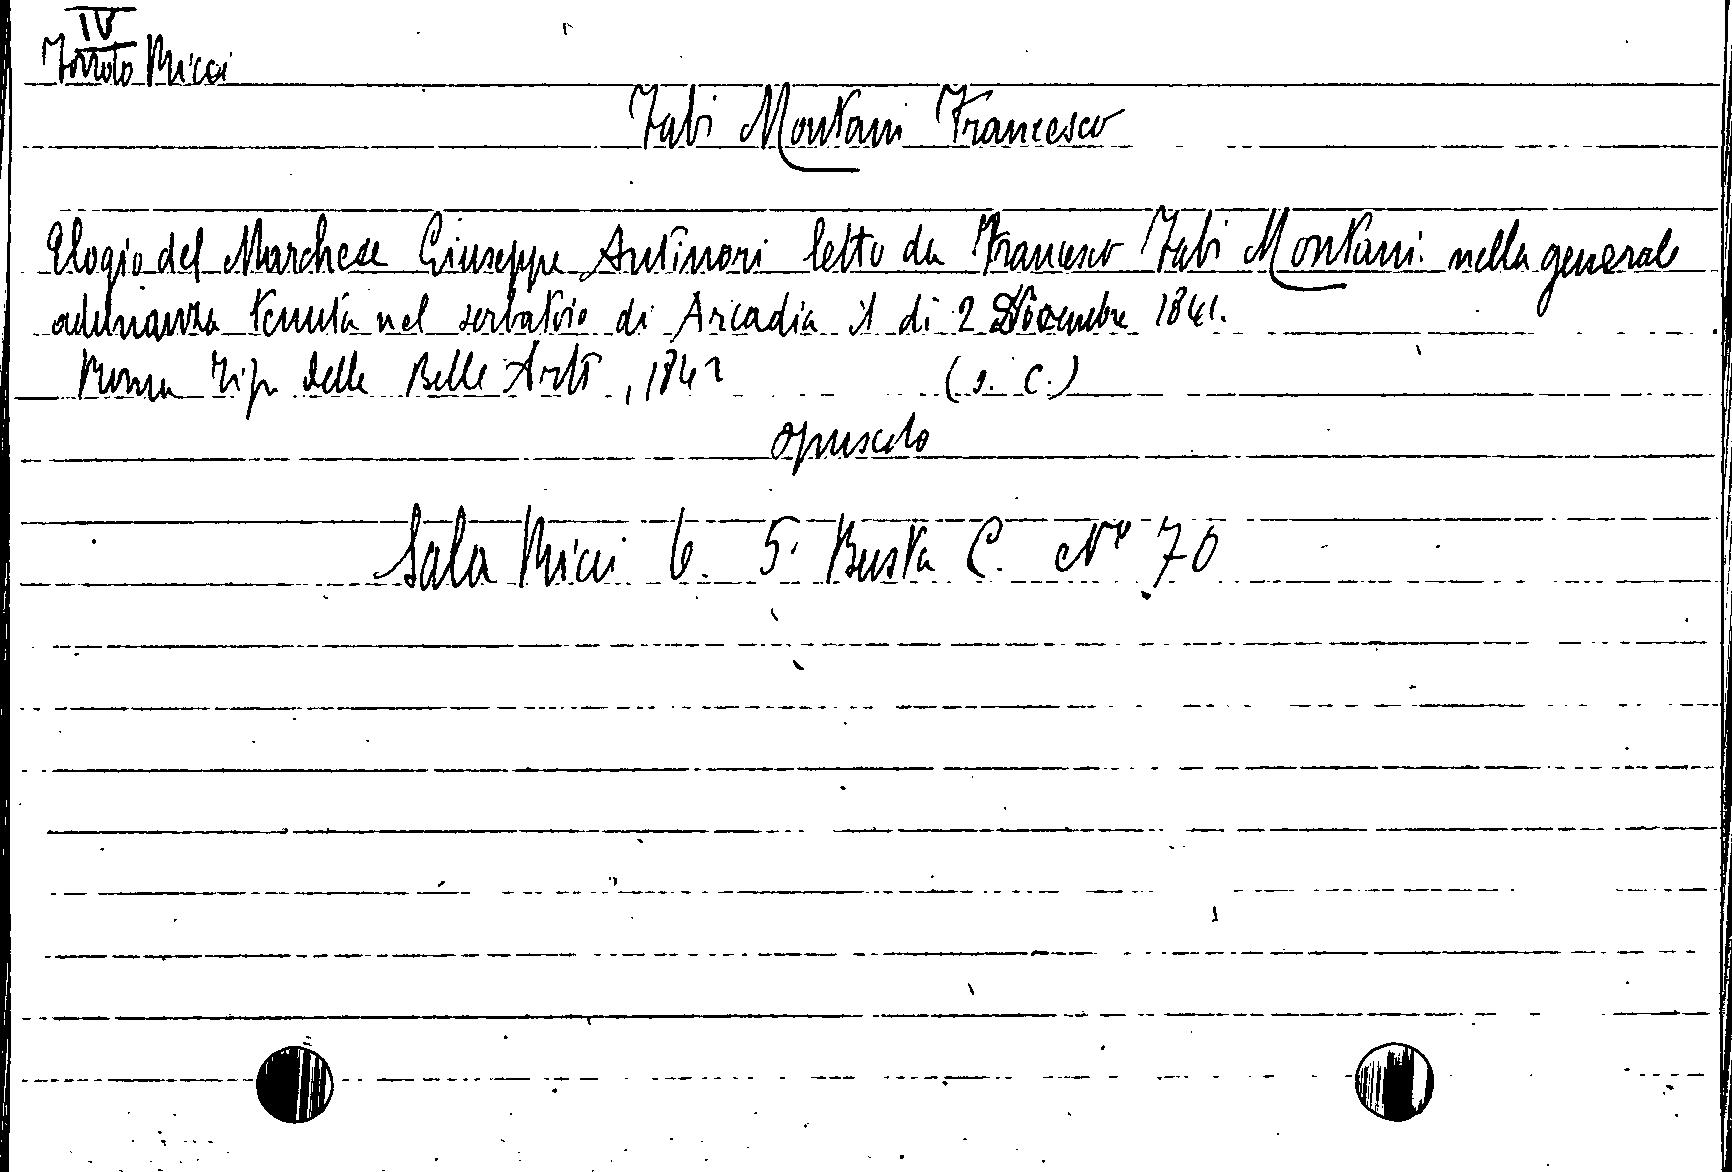 IV
Fondo Ricci
Fabi Montani Francesco
Elogio del Marchese Giuseppe Antinori letto da Francesco Fabi Montani nella generale
adunanza tenuta nel serbatoio di Arcadia il dì 2 Dicembre 1841.
Roma Tip. delle Belle Arti, 1842 (s. c.)
opuscolo
Sala Ricci 6. 5. Busta C. N° 70